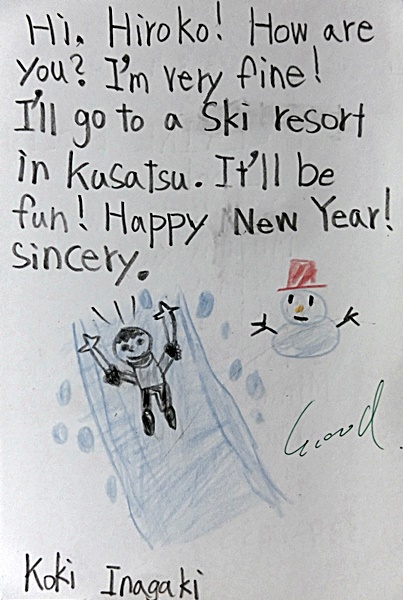 Hi, Hiroko! How are
you? I'm very fine!
I'll go to a ski resort
in Kusatsu. It'll be
fun! Happy New Year!
sincery.
Good
Koki Inagaki